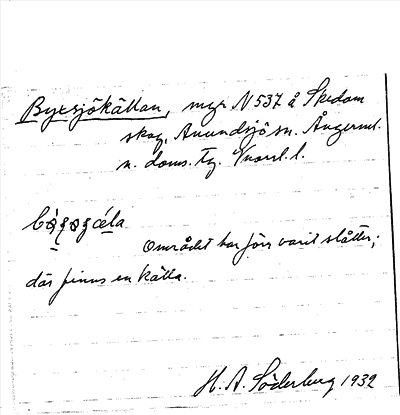 Byxsjökällan, myr N 537 å Skedom
skog, Anundsjö sn. Ångerml.
n. doms. Tg. Vnorrl. l.
Området har förr varit slåtter;
där finns en källa.
H. A. Söderberg 1932